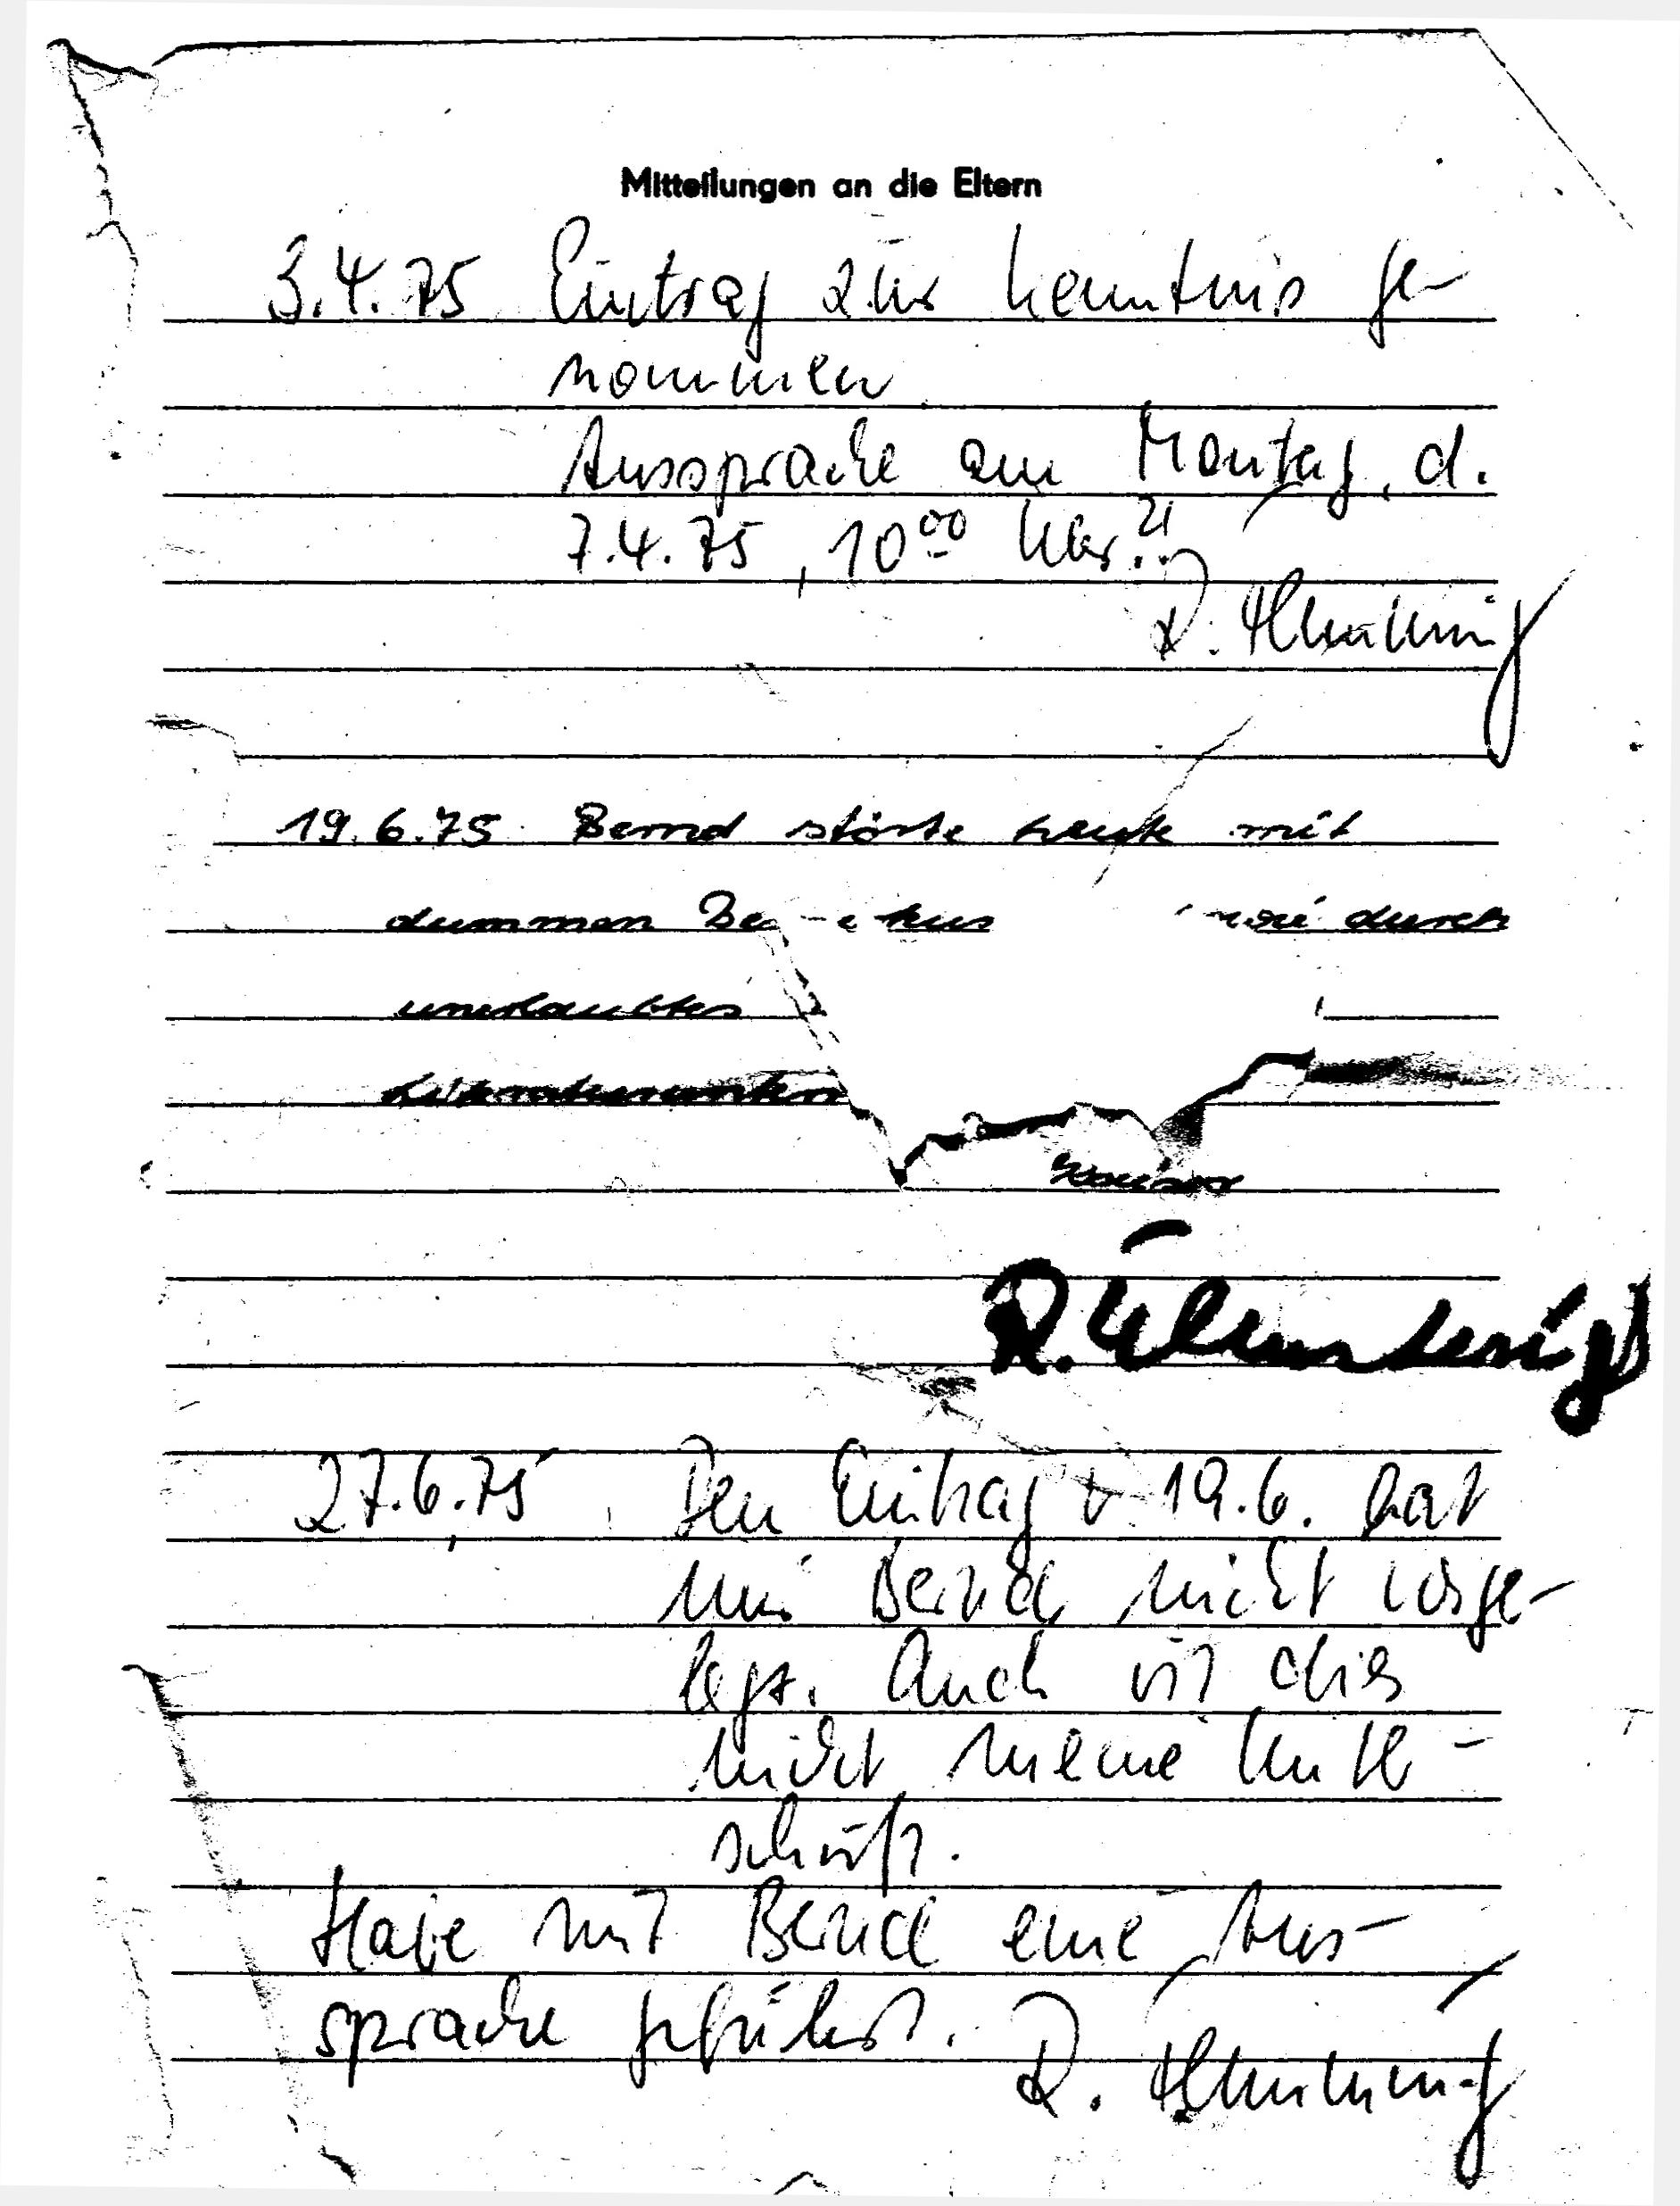 Mitteilungen an die Eltern
3.4.75 Eintrag zur Kenntnis ge-
nommen
Aussprache am Montag, d.
7.4.75, 10⁰⁰ Uhr?!
R.
19.6.75 Bernd störte heute mit
dummen durch
unerlaubtes
R.
27.6.75 Den Eintrag v. 19.6. hat
mir Bernd nicht vorge-
legt. Auch ist dies
nicht meine Unter-
schrift.
Habe mit Bernd eine Aus-
sprache geführt. R.